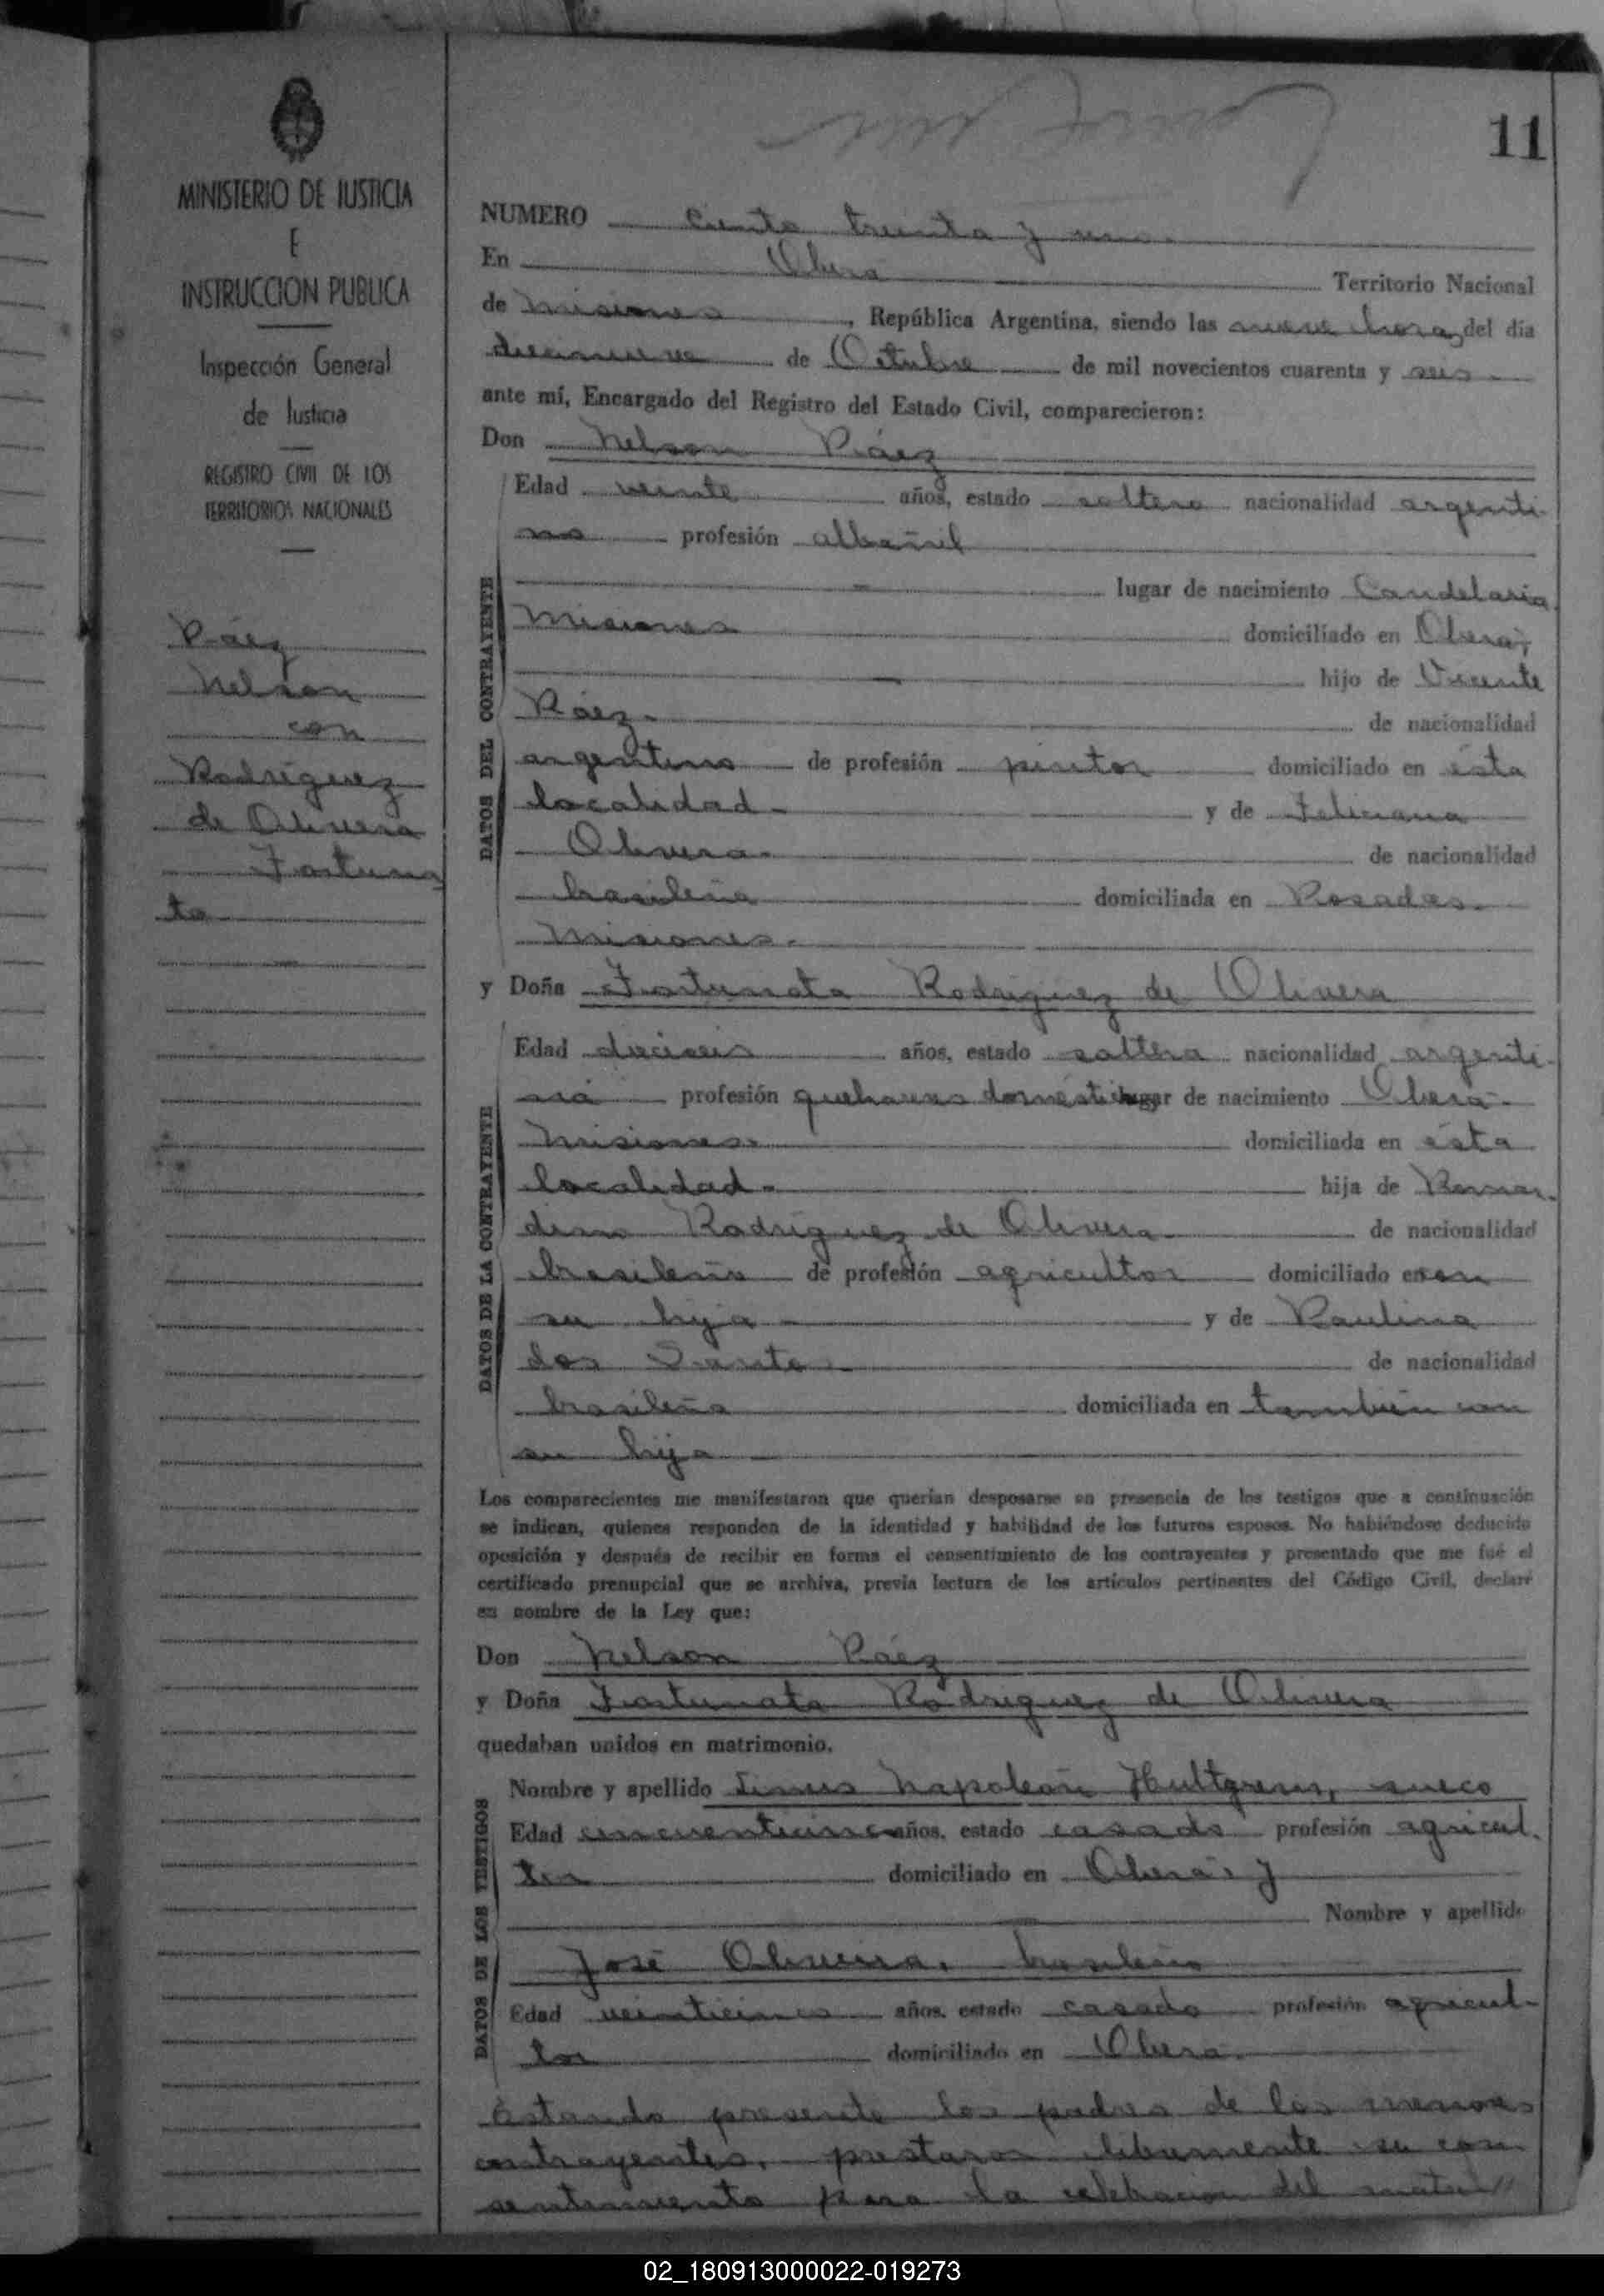 11
MINISTERIO DE JUSTICIA
E
INSTRUCCION PUBLICA
Inspección General
de Justicia
REGISTRO CIVIL DE LOS
TERRITORIOS NACIONALES
Páez
Nelson
con
Rodríguez
de Olivera
Fortuna
ta
NUMERO Ciento treinta y uno.
En Oberá Territorio Nacional
de Misiones, República Argentina, siendo las nueve horas del día
diecinueve de Octubre de mil novecientos cuarenta y seis
ante mí, Encargado del Registro del Estado Civil, comparecieron:
Don Nelson Páez
Edad veinte años, estado soltero nacionalidad argenti-
no profesión albañil
lugar de nacimiento Candelaria
Misiones domiciliado en Oberá,
hijo de Vicente
Páez. de nacionalidad
argentino de profesión pintor domiciliado en ésta
localidad- y de Feliciana
Olivera. de nacionalidad
brasileña domiciliada en Posadas.
Misiones.
y Doña Fortunata Rodriguez de Olivera
Edad dieciseis años, estado soltera nacionalidad argenti-
na profesión quehaceres domésticos lugar de nacimiento Oberá-
Misiones. domiciliada en ésta
localidad- hija de Bernar-
dino Rodriguez de Olivera de nacionalidad
brasileño de profesión agricultor domiciliado en con
su hija y de Paulina
dos Santos de nacionalidad
brasileña domiciliada en también con
su hija
Los comparecientes me manifestaron que querían desposarse en presencia de los testigos que a continuación
se indican, quienes responden de la identidad y habilidad de los futuros esposos. No habiéndose deducido
oposición y después de recibir en forma el consentimiento de los contrayentes y presentado que me fué el
certificado prenupcial que se archiva, previa lectura de los artículos pertinentes del Código Civil, declaré
en nombre de la Ley que:
Don Nelson Páez
y Doña Fortunata Rodriguez de Olivera
quedaban unidos en matrimonio.
Nombre y apellido Napoleón Hultgren, sueco
Edad años, estado casado profesión agricul-
tor domiciliado en Oberá, y
Nombre y apellido
José Oliveira, brasileño
Edad veinticinco años, estado casado profesión agricul-
tor domiciliado en Oberá.
Estando presente los padres de los menores
contrayentes, prestaron libremente su con
sentimiento para la celebracion del matri//
DATOS DEL CONTRAYENTE
DATOS DE LA CONTRAYENTE
DATOS DE LOS TESTIGOS
02_180913000022-019273